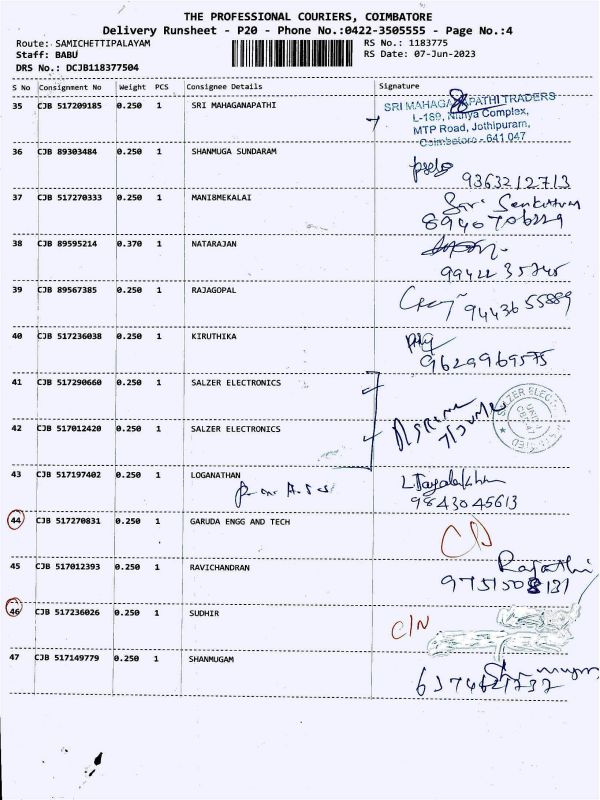 THE PROFESSIONAL COURIERS, COIMBATORE
Delivery Runsheet - P20 - Phone No.:0422-3505555 - Page No.:4
Route: SAMICHETTIPALAYAM RS No.: 1183775
Staff: BABU RS Date: 07-Jun-2023
DRS No.: DCJB118377504
S No Consignment No Weight PCS Consignee Details Signature
35 CJB 517209185 0.250 1 SRI MAHAGANAPATHI
SRI MAHAGANAPATHI TRADERS
L-189, Nithya Complex,
MTP Road, Jothipuram,
Coimbatore - 641 047
36 CJB 89303484 0.250 1 SHANMUGA SUNDARAM
9363212713
37 CJB 517270333 0.250 1 MANI8MEKALAI
38 CJB 89595214 0.370 1 NATARAJAN
39 CJB 89567385 0.250 1 RAJAGOPAL
9443655889
40 CJB 517236038 0.250 1 KIRUTHIKA
9629969575
41 CJB 517290660 0.250 1 SALZER ELECTRONICS
42 CJB 517012420 0.250 1 SALZER ELECTRONICS
43 CJB 517197402 0.250 1 LOGANATHAN
9843045613
44 CJB 517270831 0.250 1 GARUDA ENGG AND TECH
45 CJB 517012393 0.250 1 RAVICHANDRAN
46 CJB 517236026 0.250 1 SUDHIR
C/N
47 CJB 517149779 0.250 1 SHANMUGAM